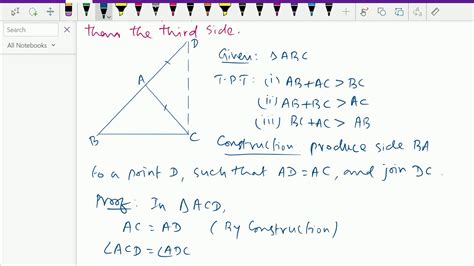 Search
All Notebooks
than the third side.
D
Given: △ABC
A
T.P.T: (i) AB+AC > BC
(ii) AB+BC > AC
(iii) BC+AC > AB
B
C
Construction produce side BA
to a point D, such that AD=AC, and join DC.
Proof: In △ACD,
AC = AD (By Construction)
∠ACD = ∠ADC